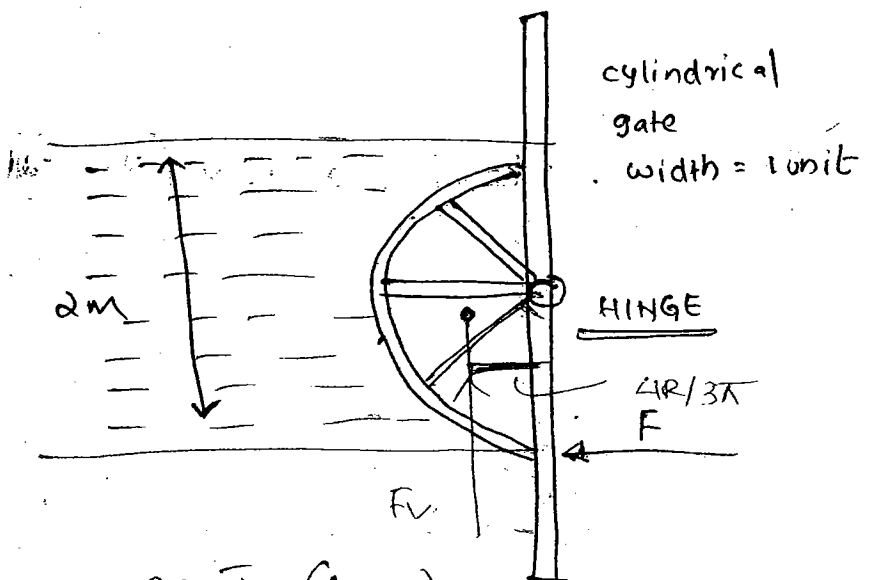 cylindrical
gate
width = 1 unit
2m
HINGE
4R/3π
F
Fv